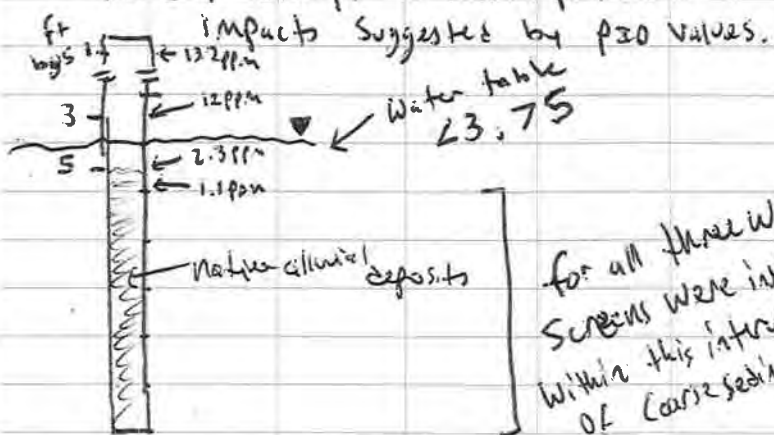 impacts suggested by PID values.
ft
bgs
1
13.2ppm
12ppm
Water table
<3.75
3
2.3ppm
5
1.1ppm
native alluvial deposits
for all three W
Screens were in
within this inter
of coarse sedi